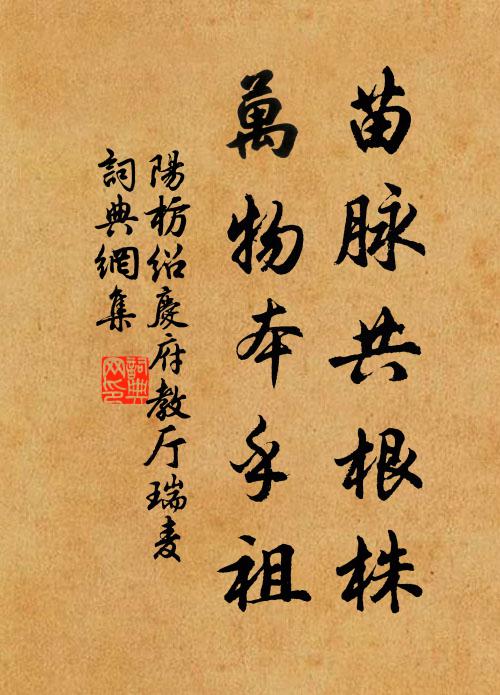 苗脉共根株
萬物本乎祖
陽枋紹慶府教厅瑞麦
詞典網集
詞典網印